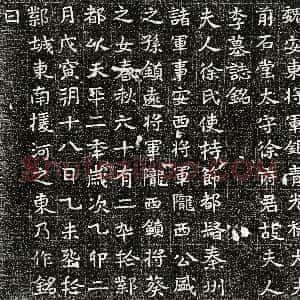 魏安東將軍銀青光祿大夫
前石堂太守徐君故夫人
李墓誌銘
夫人徐氏使持節都督秦州
諸軍事安西將軍隴西公咸
之孫鎮遠將軍隴西鎮將葵
之女春秋六十有二卒於鄴
都以天平二季歲次乙卯二
月戊寅朔十八日乙未窆於
鄴城東南援河之東乃作銘
曰